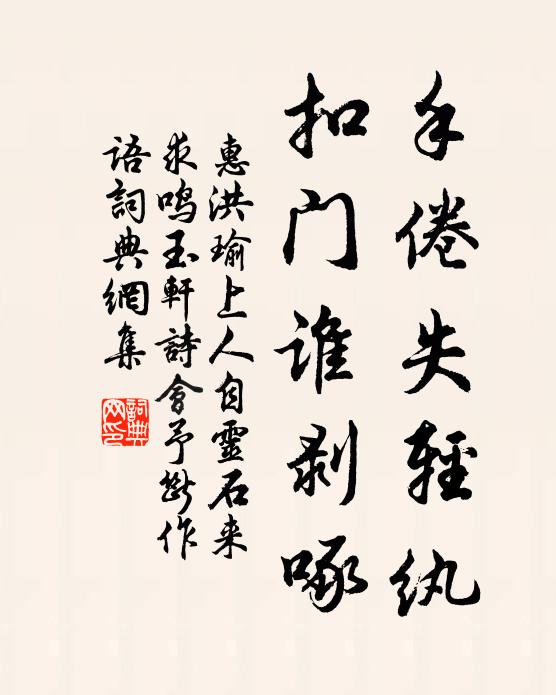 手倦失轻纨
扣门谁剥啄
惠洪瑜上人自靈石来
求鸣玉軒詩會予断作
语詞典網集
詞典
网印